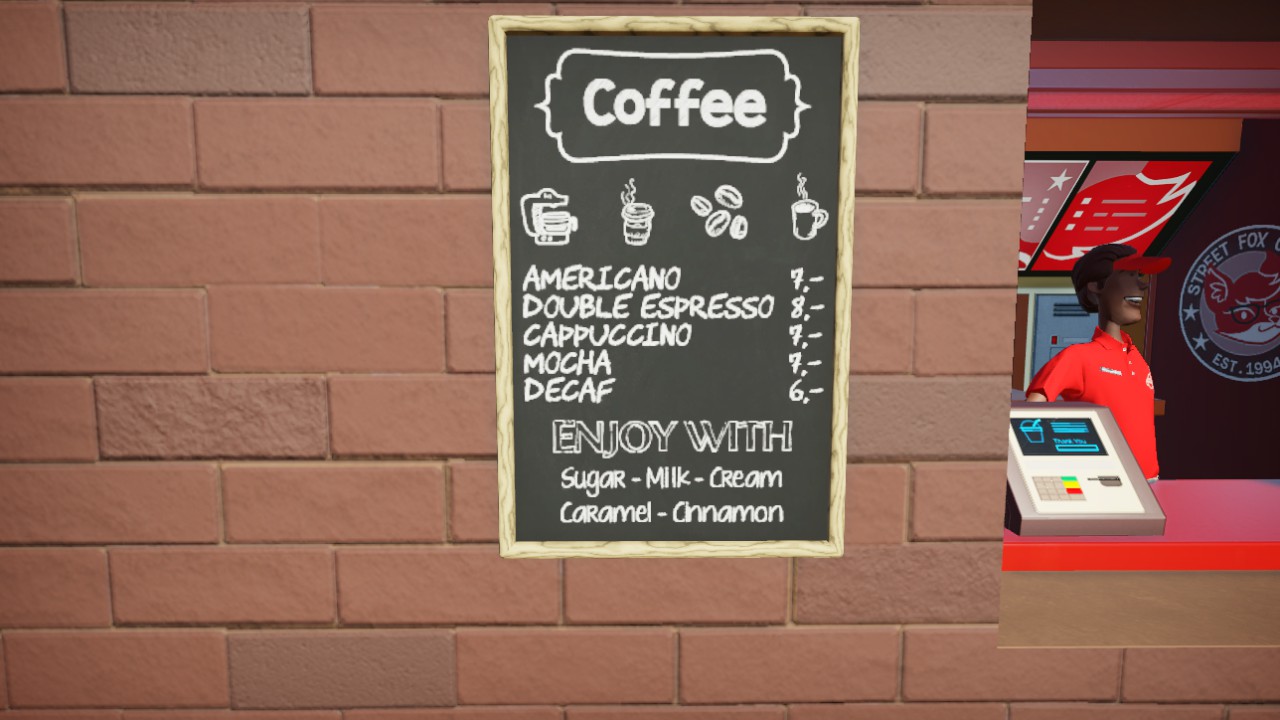 Coffee
AMERICANO 7,-
DOUBLE ESPRESSO 8,-
CAPPUCCINO 7,-
MOCHA 7,-
DECAF 6,-
ENJOY WITH
Sugar - Milk - Cream
Caramel - Cinnamon
STREET FOX
EST. 1994
Thank You